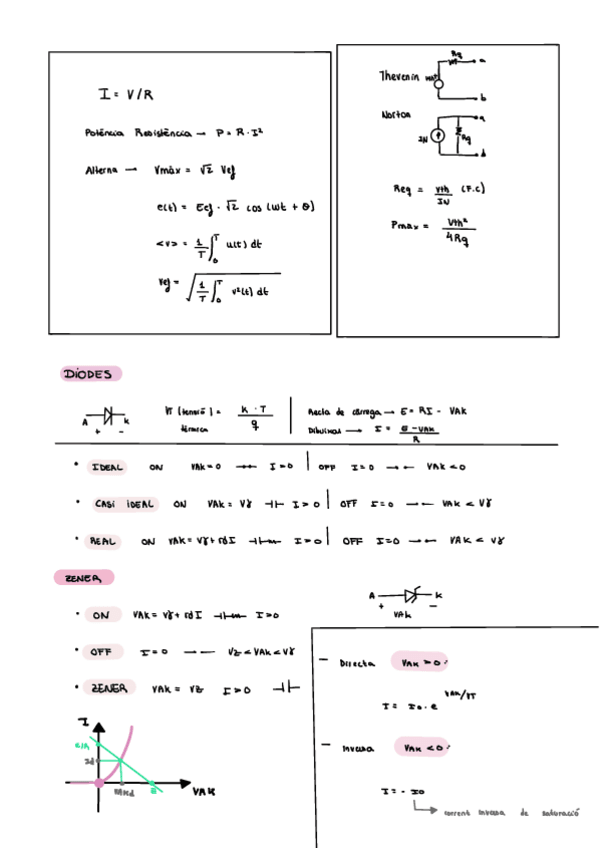 I = V/R
Potència Resistència → P = R · I²
Alterna → Vmàx = √2 Vef
e(t) = Eef · √2 cos (ωt + θ)
<v> = 1/T ∫₀ᵀ u(t) dt
Vef = √(1/T ∫₀ᵀ v²(t) dt)
Rg
a
Thevenin
b
Norton
a
IN
Rg
b
Req = Vth/IN (F.C)
Pmax = Vth²/4Rg
DÍODES
A + - K
VT (tensió tèrmica) = K · T / q
Recta de càrrega → E = RI - VAK
Dibuixos → I = E-VAK / R
• IDEAL ON VAK = 0 I > 0 | OFF I = 0 VAK < 0
• CASI IDEAL ON VAK = Vγ I > 0 | OFF I = 0 VAK < Vγ
• REAL ON VAK = Vγ + rd I I > 0 | OFF I = 0 VAK < Vγ
ZENER
A + - K
VAK
• ON VAK = Vγ + rd I I > 0
• OFF I = 0 VZ < VAK < Vγ
• ZENER VAK = VZ I > 0
— Directa VAK > 0
I = I0 · e^(VAK/VT)
— Inversa VAK < 0
I = - I0
corrent inversa de saturació
I
Id
E
VAK